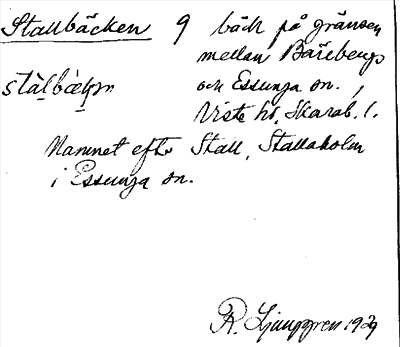 Stallbäcken 9 bäck på gränsen
mellan Bäreberg
stàlbæ̀kən och Essunga sn.,
Viste hd, Skarab. l.
Namnet efter Stall, Stallaholm
i Essunga sn.
R. Ljunggren 1929